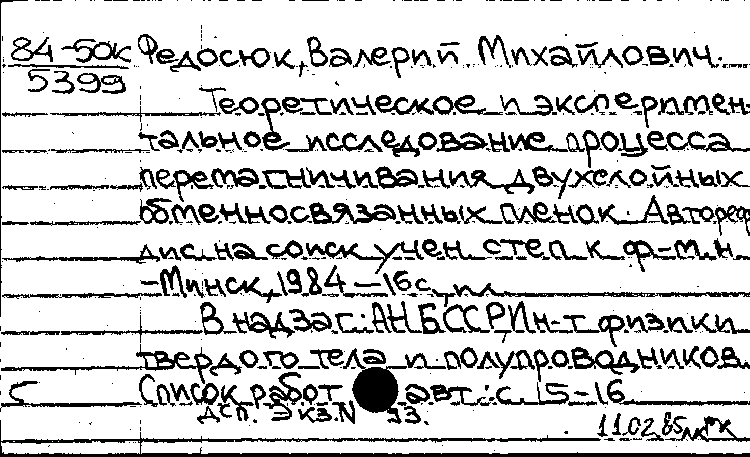 84-50к Федосюк, Валерий Михайлович.
5399
Теоретическое и эксперимен-
тальное исследование процесса
перемагничивания двухслойных
обменносвязанных пленок. Автореф.
дис. на соиск учен. степ к. ф-м. н.
-Минск, 1984 - 16 с., ил.
В надзаг: АН БССР, Ин-т физики
твердого тела и полупроводников.
С Список работ авт.: с. 15-16
ДСП. Экз. N 33.
11.02.85